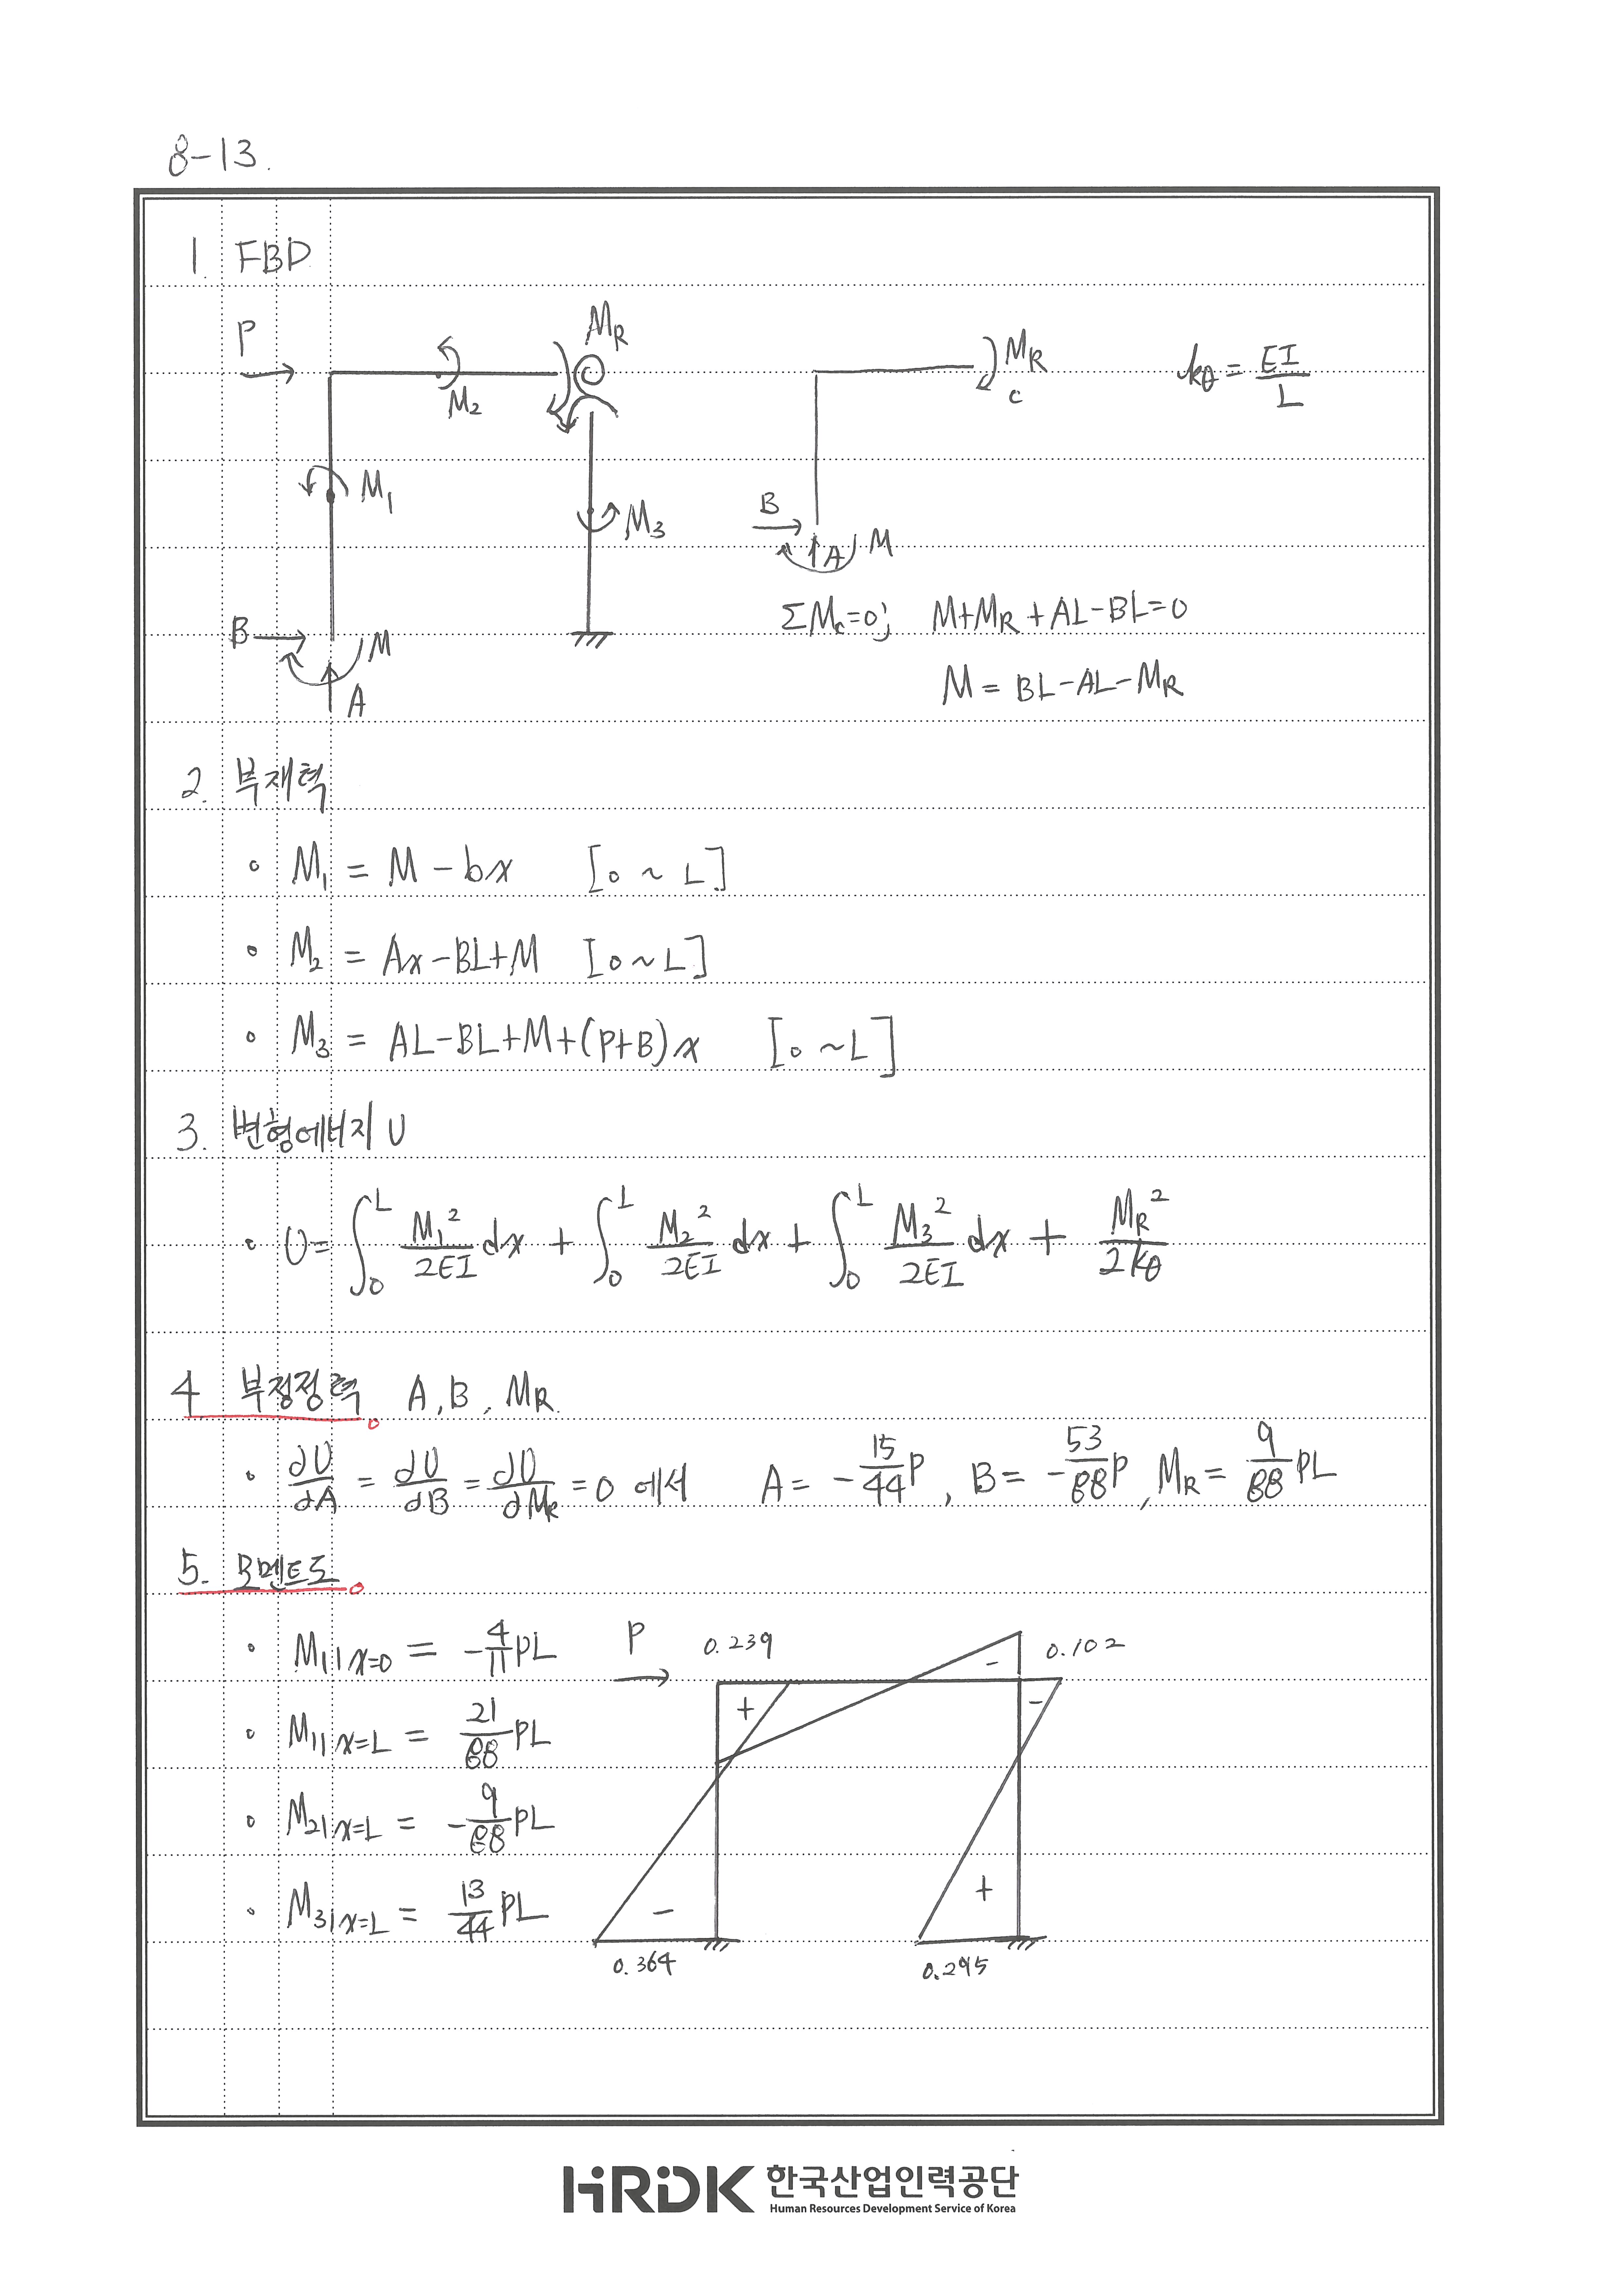 8-13.
1. FBD
P
M_R
M_2
M_1
M_3
B
M
A
M_R
c
B
A
M
k_θ = EI/L
ΣM_c=0; M+M_R+AL-BL=0
M = BL-AL-M_R
2. 부재력
• M_1 = M - bx [0 ~ L]
• M_2 = Ax-BL+M [0~L]
• M_3 = AL-BL+M+(P+B)x [0 ~L]
3. 변형에너지 U
• U= ∫_0^L M_1^2/2EI dx + ∫_0^L M_2^2/2EI dx + ∫_0^L M_3^2/2EI dx + M_R^2/2k_θ
4 부정정력 A, B, M_R.
• ∂U/∂A = ∂U/∂B = ∂U/∂M_R = 0 에서 A = -15/44 P, B = -53/88 P, M_R = 9/88 PL
5. 모멘트도
• M_1|x=0 = -4/11 PL
• M_1|x=L = 21/88 PL
• M_2|x=L = -9/88 PL
• M_3|x=L = 13/44 PL
P
0.239
0.102
+
-
-
-
+
0.364
0.295
HRDK 한국산업인력공단
Human Resources Development Service of Korea